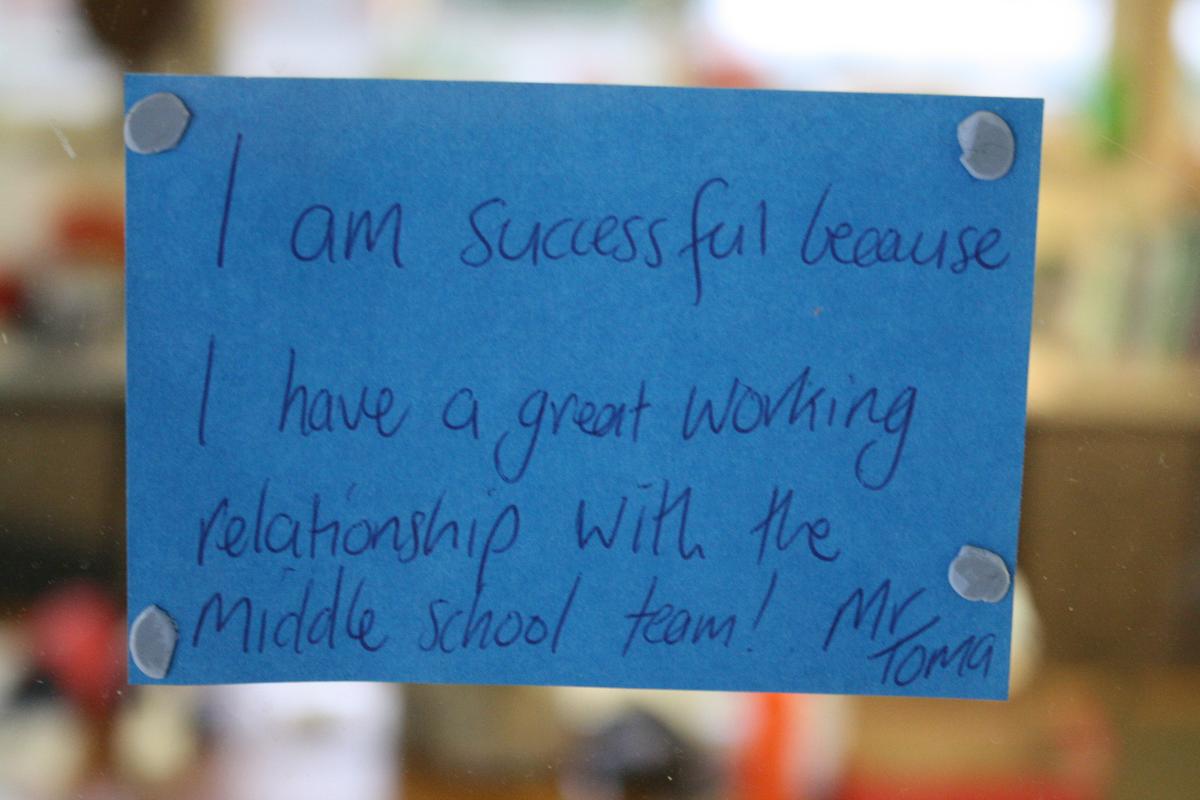 I am successful because
I have a great working
relationship with the
Middle school team! Mr
Toma